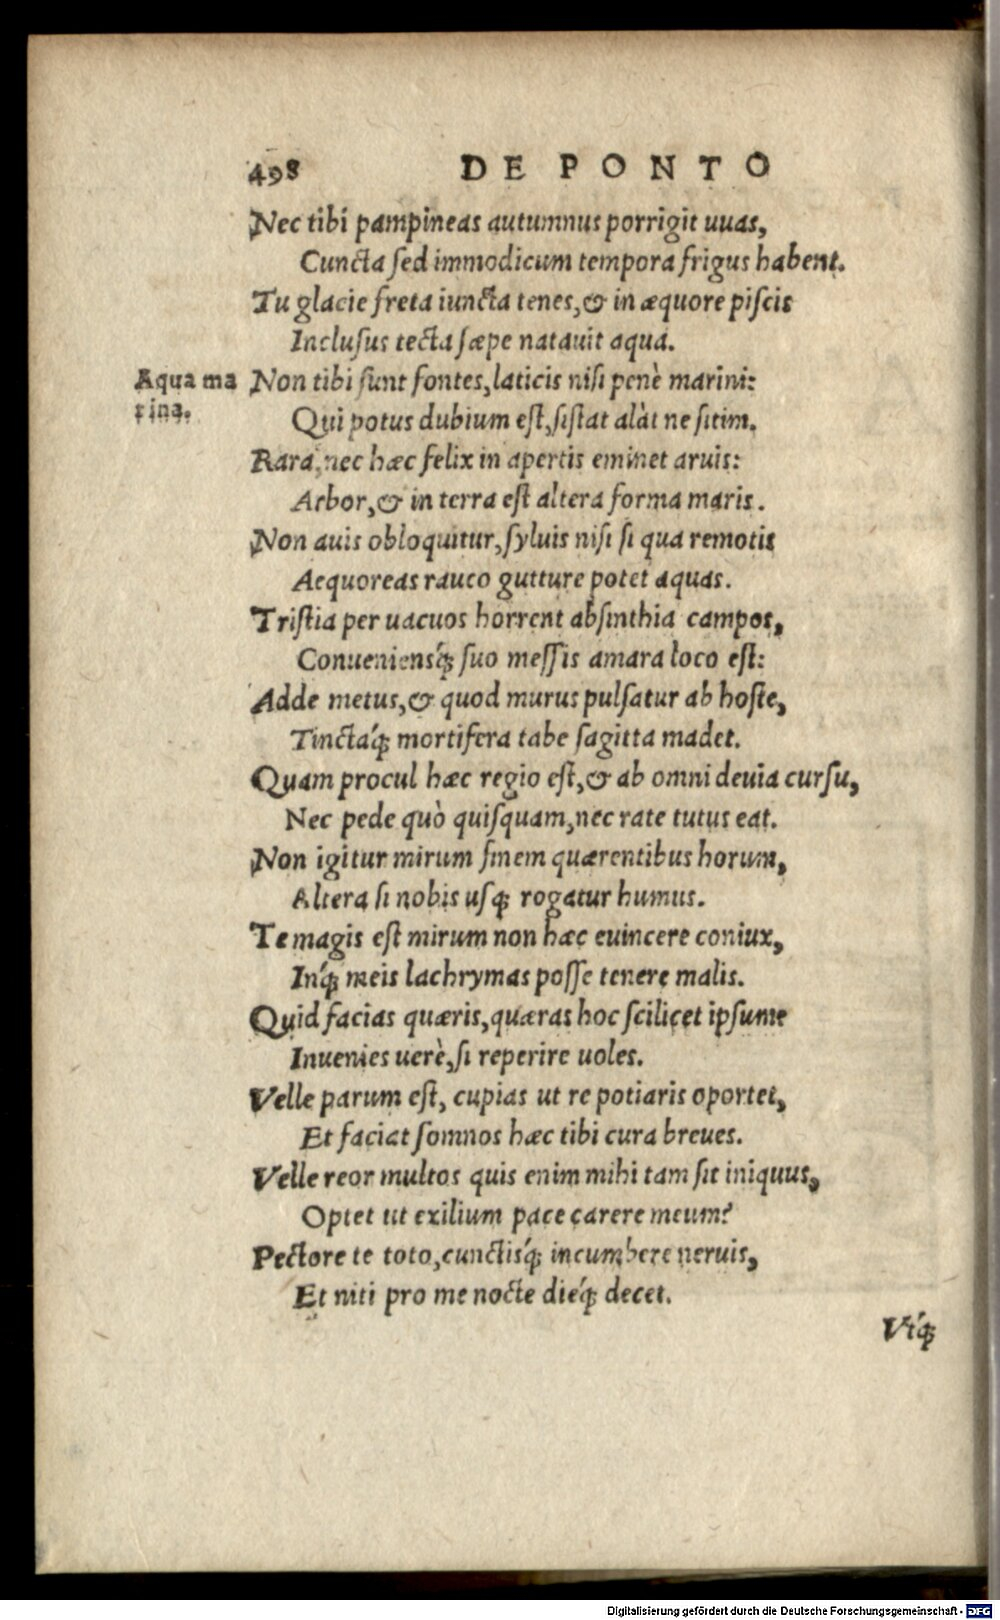 498 DE PONTO
Nec tibi pampineas autumnus porrigit uuas,
Cuncta sed immodicum tempora frigus habent.
Tu glacie freta iuncta tenes,& in æquore piscis
Inclusus tecta sæpe natauit aqua.
Aqua ma
rina.
Non tibi sunt fontes,laticis nisi penè marini:
Qui potus dubium est,sistat alàt ne sitim.
Rara,nec hæc felix in apertis eminet aruis:
Arbor,& in terra est altera forma maris.
Non auis obloquitur,syluis nisi si qua remotis
Aequoreas rauco gutture potet aquas.
Tristia per uacuos horrent absinthia campos,
Conueniensq́; suo messis amara loco est:
Adde metus,& quod murus pulsatur ab hoste,
Tinctaq́; mortifera tabe sagitta madet.
Quam procul hæc regio est,& ab omni deuia cursu,
Nec pede quò quisquam,nec rate tutus eat.
Non igitur mirum finem quærentibus horum,
Altera si nobis usq; rogatur humus.
Te magis est mirum non hæc euincere coniux,
Inq́; meis lachrymas posse tenere malis.
Quid facias quæris,quæras hoc scilicet ipsum
Inuenies uerè,si reperire uoles.
Velle parum est, cupias ut re potiaris oportet,
Et faciat somnos hæc tibi cura breues.
Velle reor multos quis enim mihi tam sit iniquus,
Optet ut exilium pace carere meum?
Pectore te toto,cunctisq́; incumbere neruis,
Et niti pro me nocte dieq́; decet.
Vtq́;
Digitalisierung gefördert durch die Deutsche Forschungsgemeinschaft - DFG